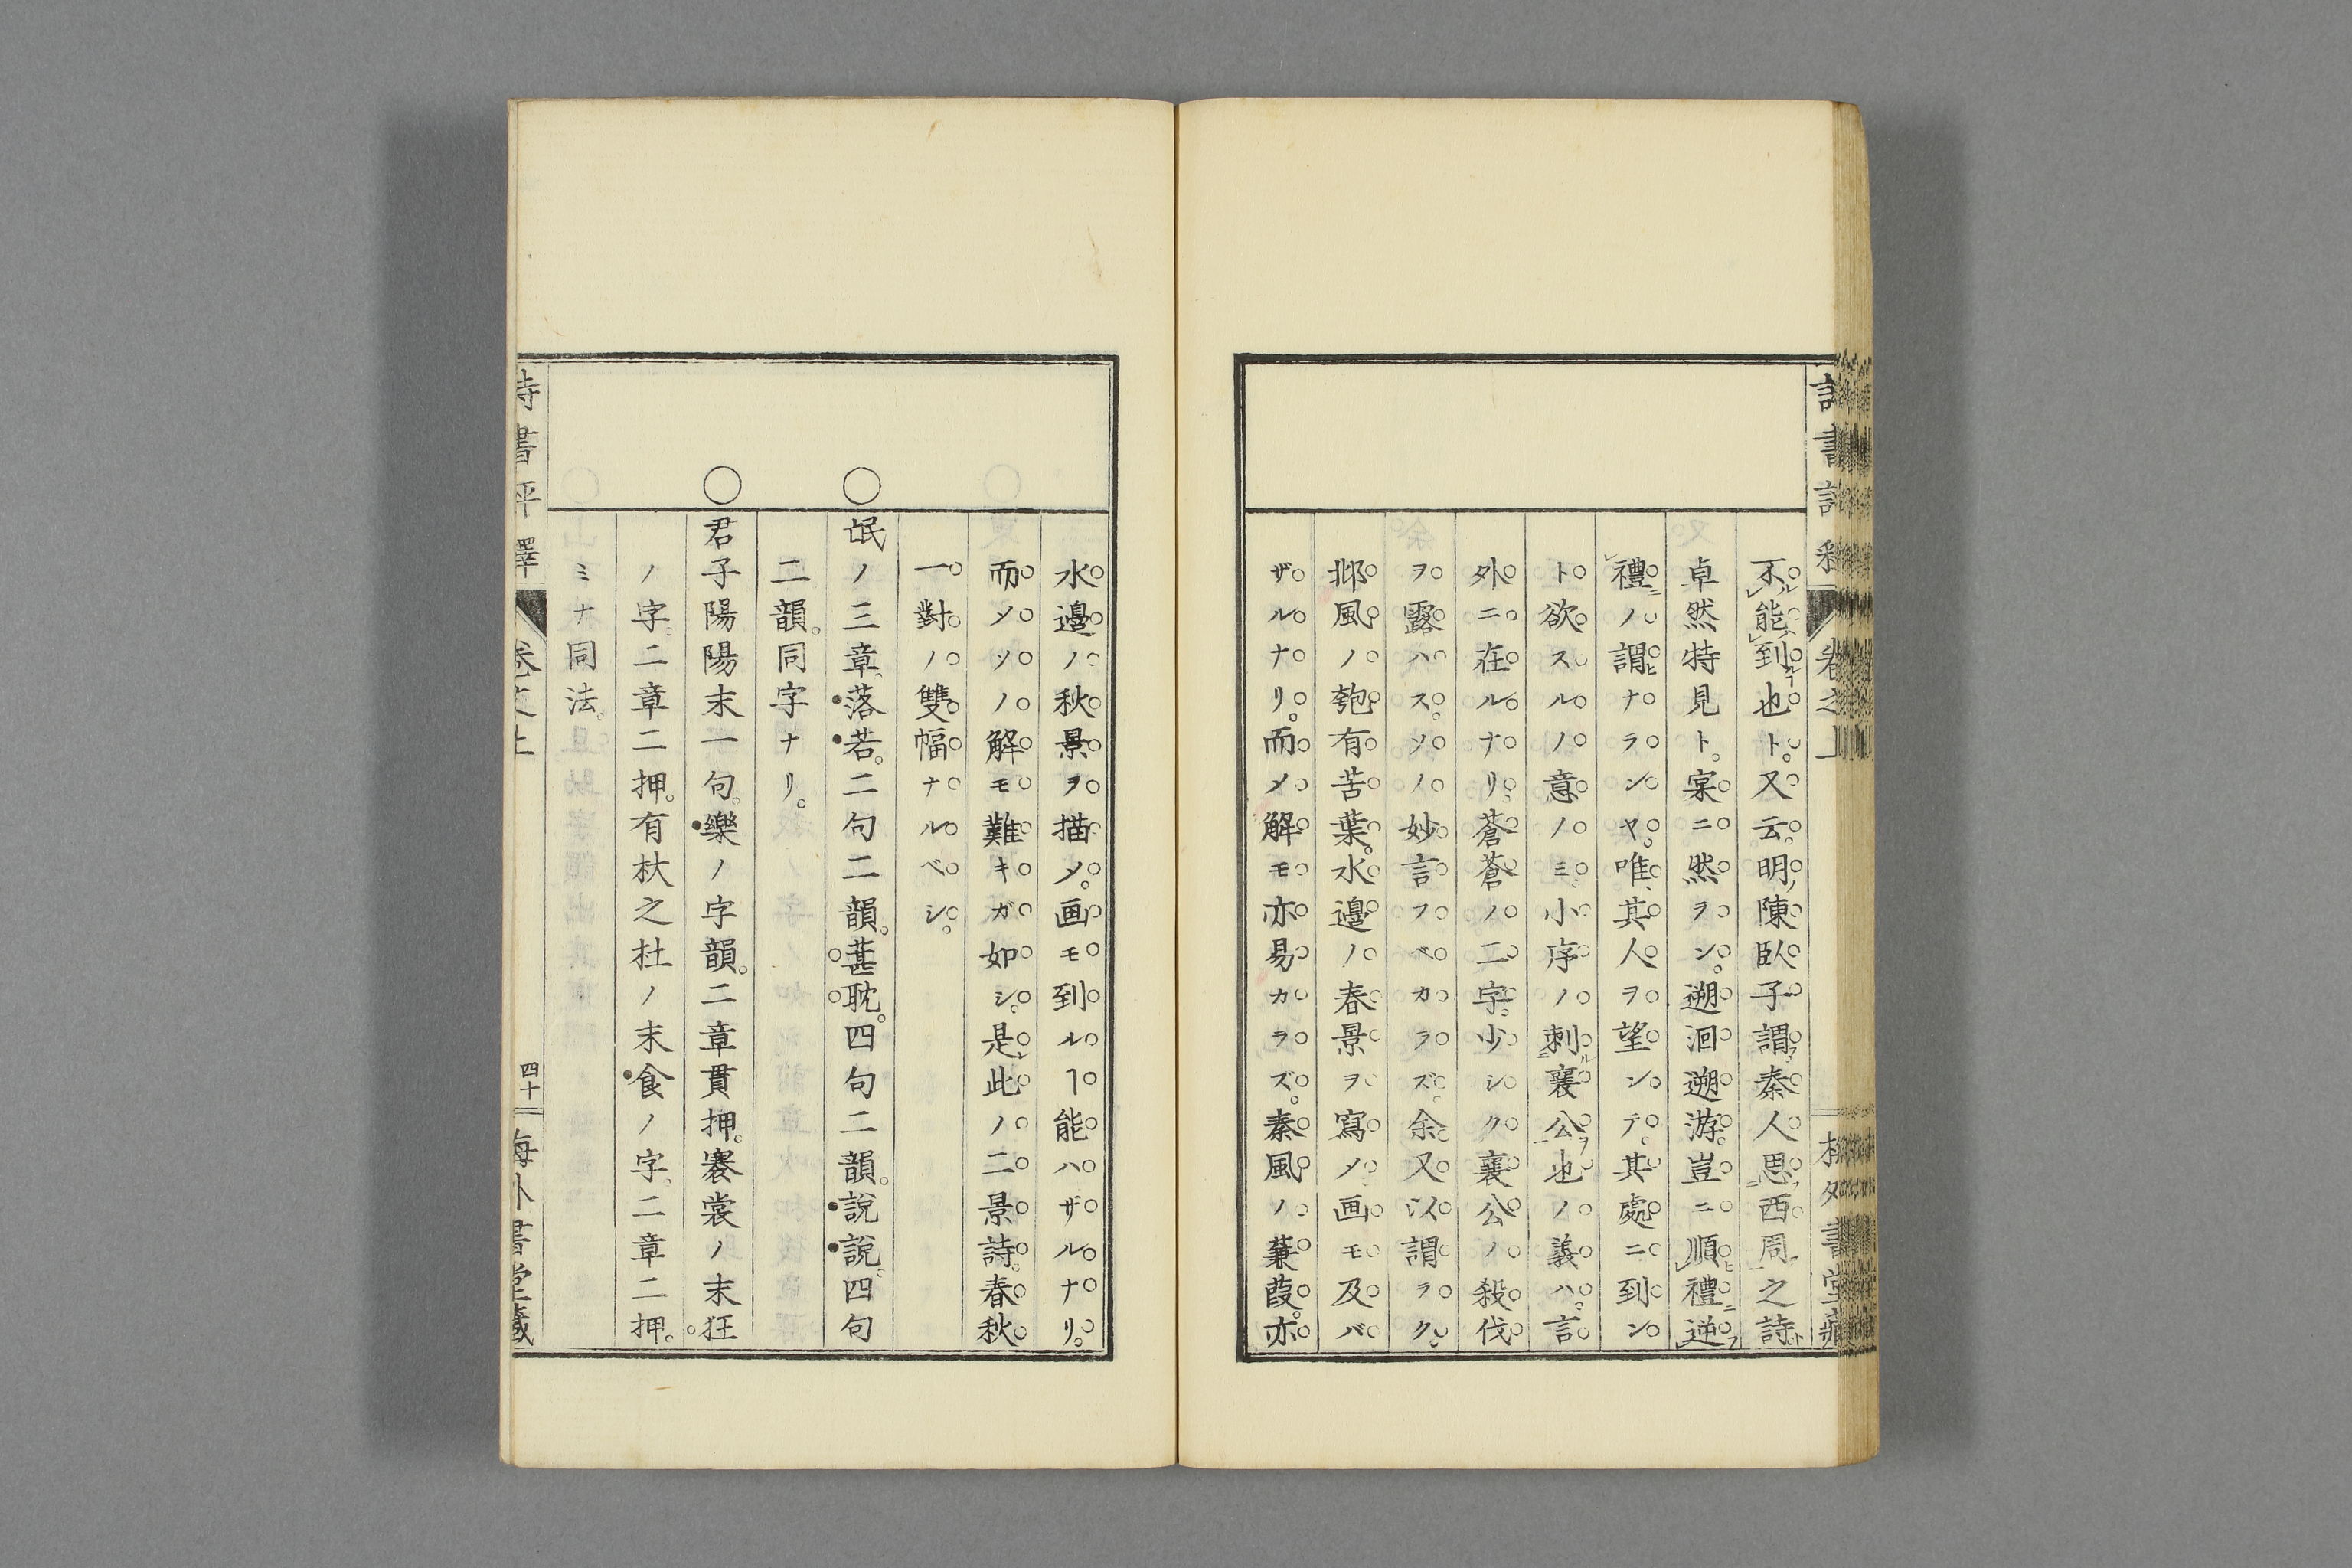 不能到也ト。又云。明ノ陳臥子謂秦人思西周之詩ト
卓然特見ト。寔ニ然ラン。遡洄遡游。豈ニ順禮逆
禮ノ謂ナランヤ。唯其人ヲ望ンデ。其處ニ到ン
ト欲スルノ意ノミ。小序ノ刺襄公也ノ義ハ。言
外ニ在ルナリ。蒼蒼ノ二字。少シク襄公ノ殺伐
ヲ露ハス。ソノ妙言フベカラズ。余又以謂ラク。
邶風ノ匏有苦葉。水邊ノ春景ヲ寫メ画モ及バ
ザルナリ。而メ解モ亦易カラズ。秦風ノ蒹葭。亦
水邊ノ秋景ヲ描メ。画モ到ルヿ能ハザルナリ。
而メソノ解モ難キガ如シ。是此ノ二景詩。春秋
一對ノ雙幅ナルベシ。
〇氓ノ三章。落若。二句二韻。葚耽。四句二韻。說說。四句
二韻。同字ナリ。
〇君子陽陽末一句。樂ノ字韻。二章貫押。褰裳ノ末狂
ノ字。二章二押。有杕之杜ノ末食ノ字。二章二押。
ミナ同法。
詩書評釋 卷之上 四十 海外書堂藏